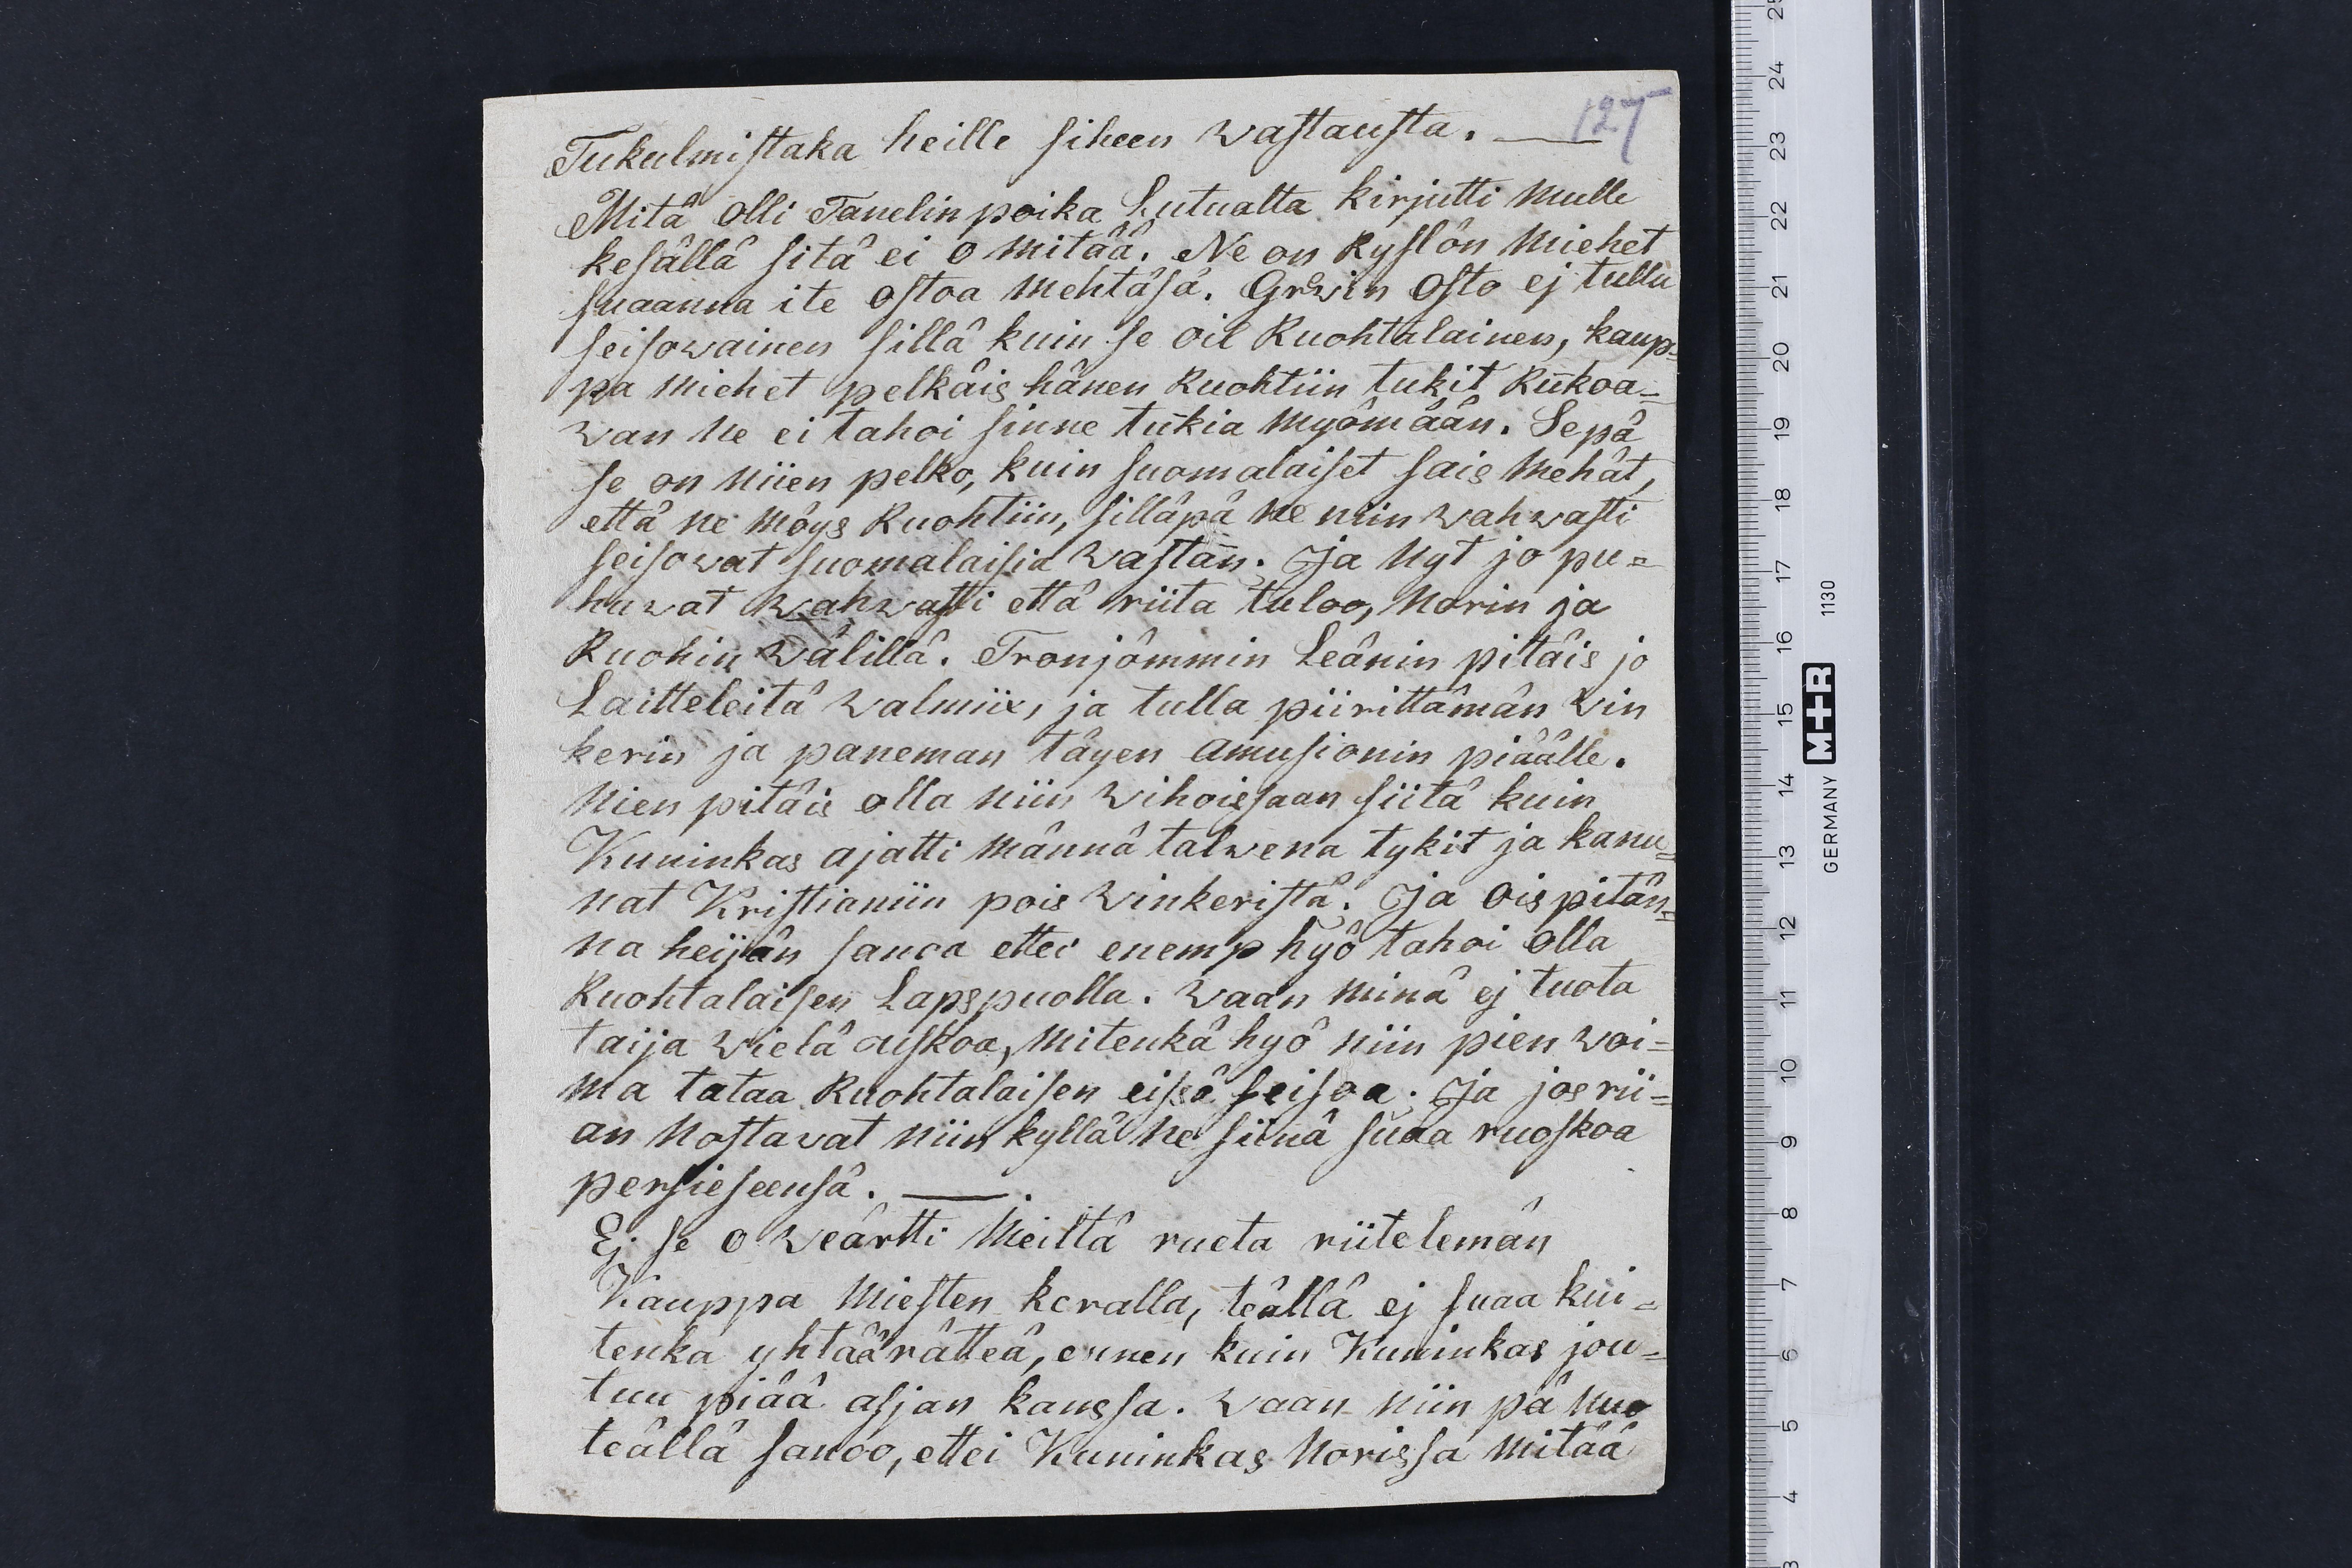 127
Tukulmistaka heille siheen wastausta. —
Mitä Olli Tanelinpoika Lutualta kirjutti mulle
kesällä sitä ei o mitää. Ne on kyslön miehet
suaanna ite ostoa mehtäsä. Grèvin Osto ej tullu
seisowainen sillä kuin se oil Ruohtalainen, kaup=
pa miehet pelkäis hänen Ruohtiin tukit kukoa=
wan ne ei tahoi sinne tukia myömään. Sepä
se on niien pelko, kuin suomalaiset sais mehät,
että ne möys Ruohtiin, silläpä ne niin wahwasti
seisowat suomalaisia wastan. Ja nyt jo pu=
huwat wahwasti että riita tuloo, Norin ja
Ruohin wälillä. Tronjömmin Leänin pitäis jo
Laitteleitä walmiix, ja tulla piirittämän Win
kerin ja paneman täyen amusionin piäälle.
Nien pitäis olla niin wihoissaan siitä kuin
Kuninkas ajatti männä talwena tykit ja kanu=
nat Kristianiin pois Winkeristä. Ja ois pitän=
na heijän sanoa ettei enemp hyö tahoi olla
Ruohtalaisen Lapspuolla. Waan minä ej tuota
taija wielä uskoa, mitenkä hyö niin pien woi=
ma tataa Ruohtalaisen eissä seisoa. Ja jos rii=
an nostavat niin kyllä ne siinä suaa ruoskoa
persieseensä. —
Ej se o weärtti meiltä rueta riitelemän
Kauppa miesten keralla, teällä ej suaa kui=
tenka yhtäärätteä, ennen kuin Kuninkas jou=
tuu piää asjan kanssa. Waan niin pä nuo
teällä sanoo, ettei Kuninkas Norissa mitää
25
24
23
22
21
20
19
18
17
16
15
14
13
12
11
10
9
8
7
6
5
4
3
GERMANY M+R 1130